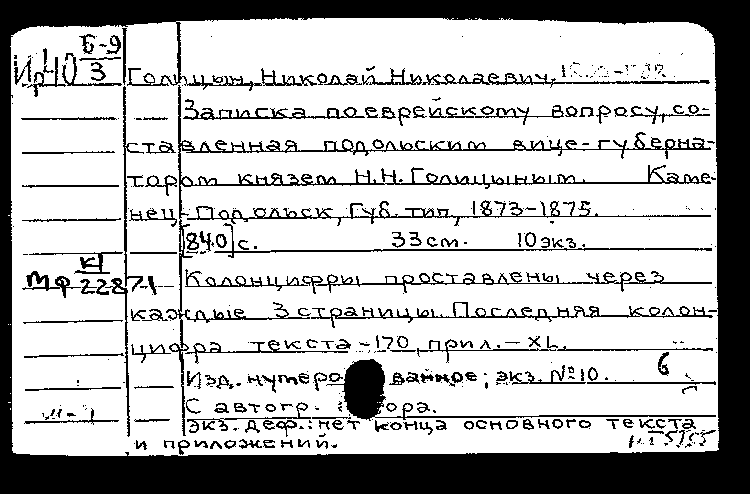 Б-9
Ир40 3 Голицын, Николай Николаевич,
Записка по еврейскому вопросу, со-
ставленная подольским вице-губерна-
тором князем Н.Н. Голицыным. Каме-
нец-Подольск, Губ. тип, 1873-1875.
[840] с. 33 см. 10 экз.
к1
Мф 22871 Колонцифры проставлены через
каждые 3 страницы. Последняя колон-
цифра текста -170, прил. - XL.
Изд. нумерованное; экз. №10. 6
С автогр.
экз. деф.: нет конца основного текста
и приложений.